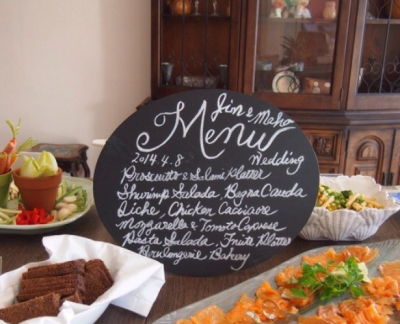 Jin & Maho
Menu
2014.4.8 Wedding
Proscuitto & Salami Platter
Shurimp Salada, Bagna Cauda
Quiche, Chicken Cacciaore
Mozzarella & Tomato Caprese
Pasta Salada, Fruite Platter
Boulengerie Bakery